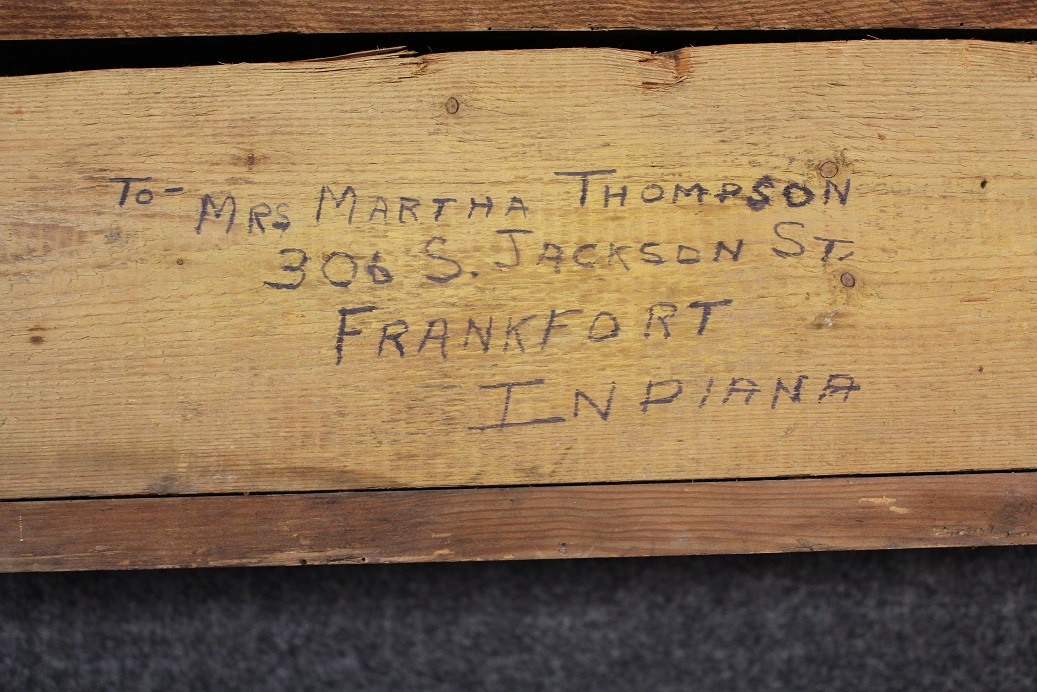 To- MRS MARTHA THOMPSON
306 S. JACKSON ST.
FRANKFORT
INDIANA